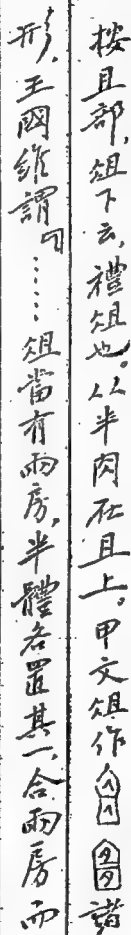 按且部，俎下云，禮俎也。从半肉在且上。甲文俎作諸
形，王國維謂「……俎當有兩房，半體各置其一，合兩房而